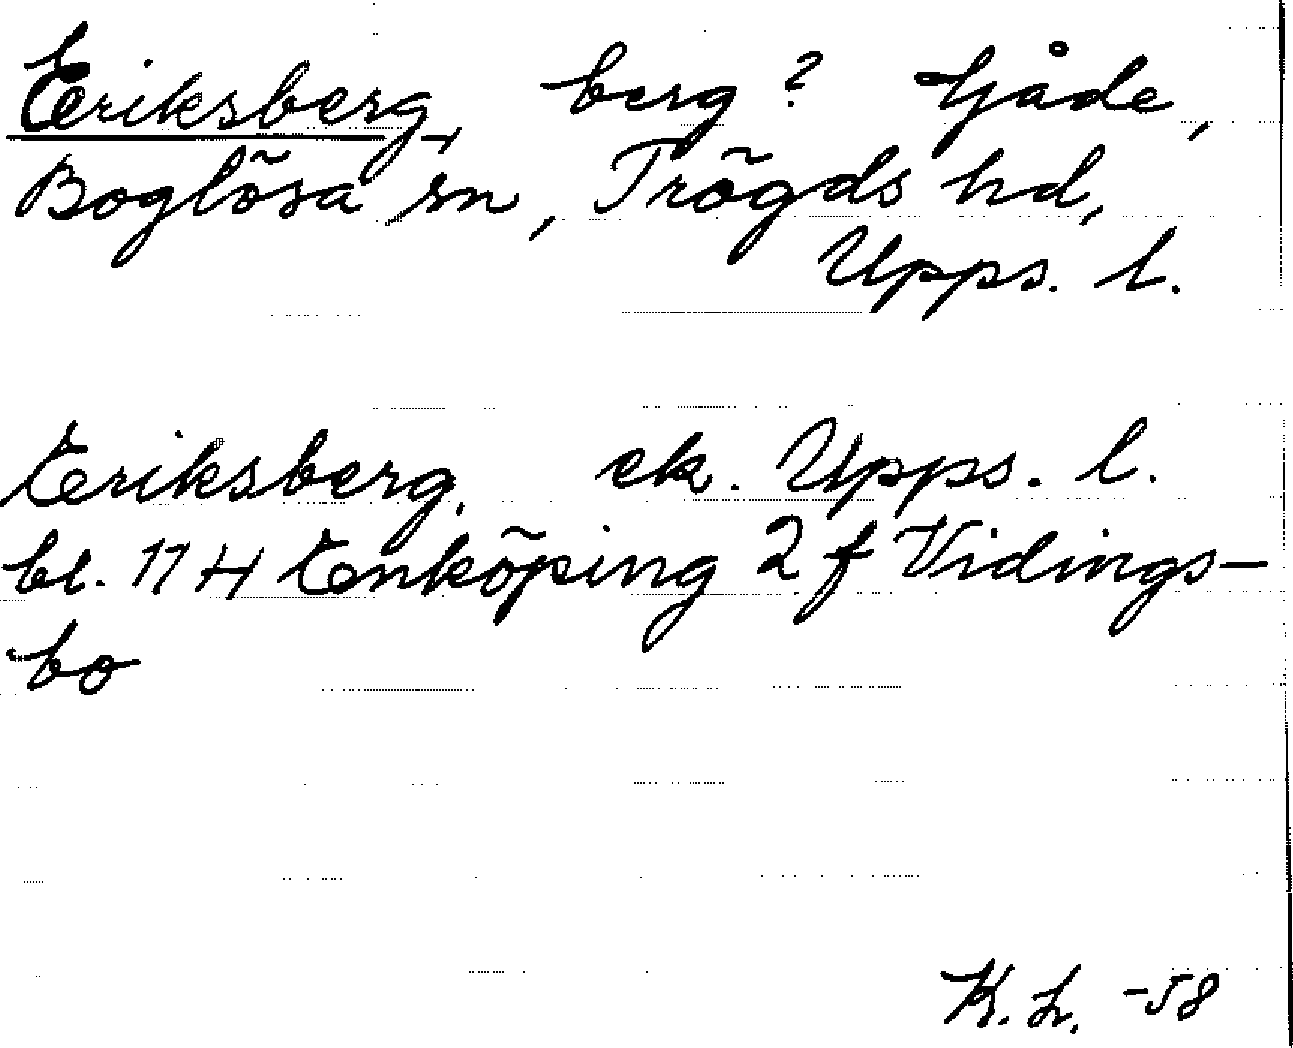 Eriksberg, berg? Tjåde,
Boglösa sn, Trögds hd,
Upps. l.
Eriksberg, ek. Upps. l.
bl. 11 H Enköping 2 f Vidings-
bo
K. L. -58